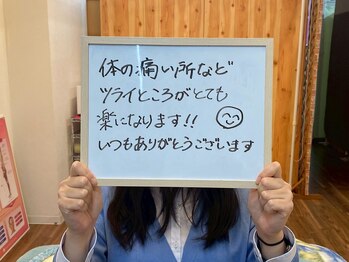 体の痛い所など
ツライところがとても
楽になります!!
いつもありがとうございます